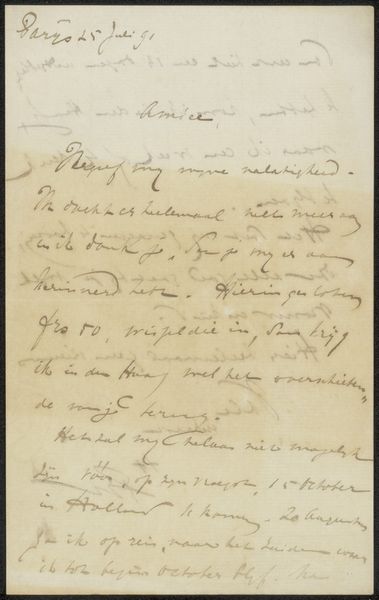 Parijs 25 Juli 91
Amice,
Vergeef my myne nalatigheid.
Ik dacht er heelemaal niet meer aan
en ik dank je, dat je my er aan
herinnerd hebt. Hierin gesloten
frs 50, wissel die in, dan krijg
ik in den Haag wel het overschieten-
de van je terug.
Het zal my helaas niet mogelijk
zijn vóór, op zijn vroegst, 15 October
in Holland te komen. 20 Augustus
ga ik op reis, naar het Zuiden waar
ik tot begin October blijf. Na